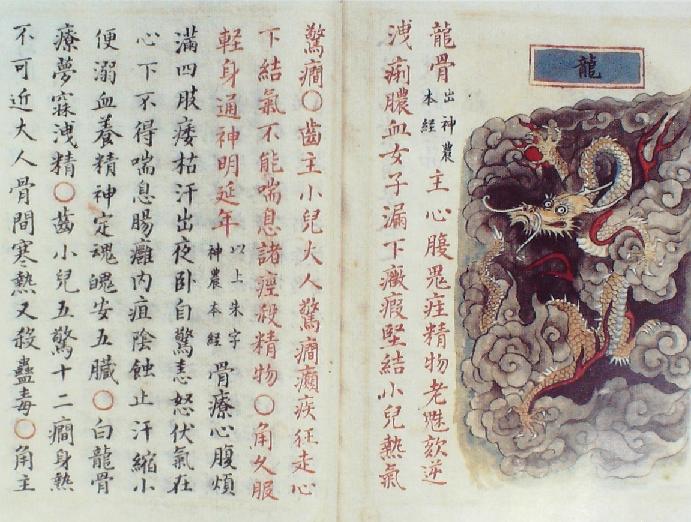 龍
龍骨出神農本經主心腹鬼疰精物老魅欬逆
洩痢膿血女子漏下癥瘕堅結小兒熱氣
驚癇○齒主小兒大人驚癇癲疾狂走心
下結氣不能喘息諸痙殺精物○角久服
軽身通神明延年以上朱字神農本經骨療心腹煩
滿四肢痿枯汗出夜卧自驚恚怒伏氣在
心下不得喘息腸癰内疽陰蝕止汗縮小
便溺血養精神定魂魄安五臓○白龍骨
療夢寐洩精○齒小兒五驚十二癇身熱
不可近大人骨間寒熱又殺蠱毒○角主